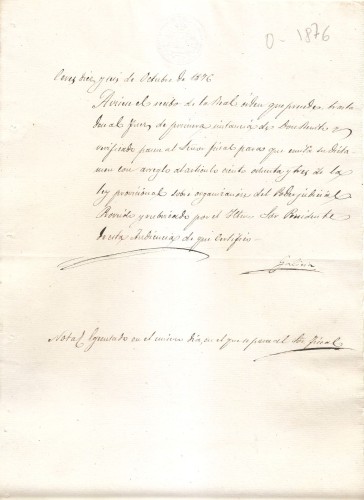 0-1876
Ceres diez y seis de Octubre de 1876
el recibo de la Real orden que precede, trasla
dese al Juez de primera instancia de Don Benito y
verificado pase al Señor fiscal para que emita su dicta
men con arreglo al artículo ciento ochenta y tres de la
ley provisional sobre organización del Poder judicial
Acordó y rubricado por el Iltmo Sor Presidente
de esta Audiencia de que Certifico=
Nota Ejecutado en el mismo dia, en el que se pasa al Sor fiscal